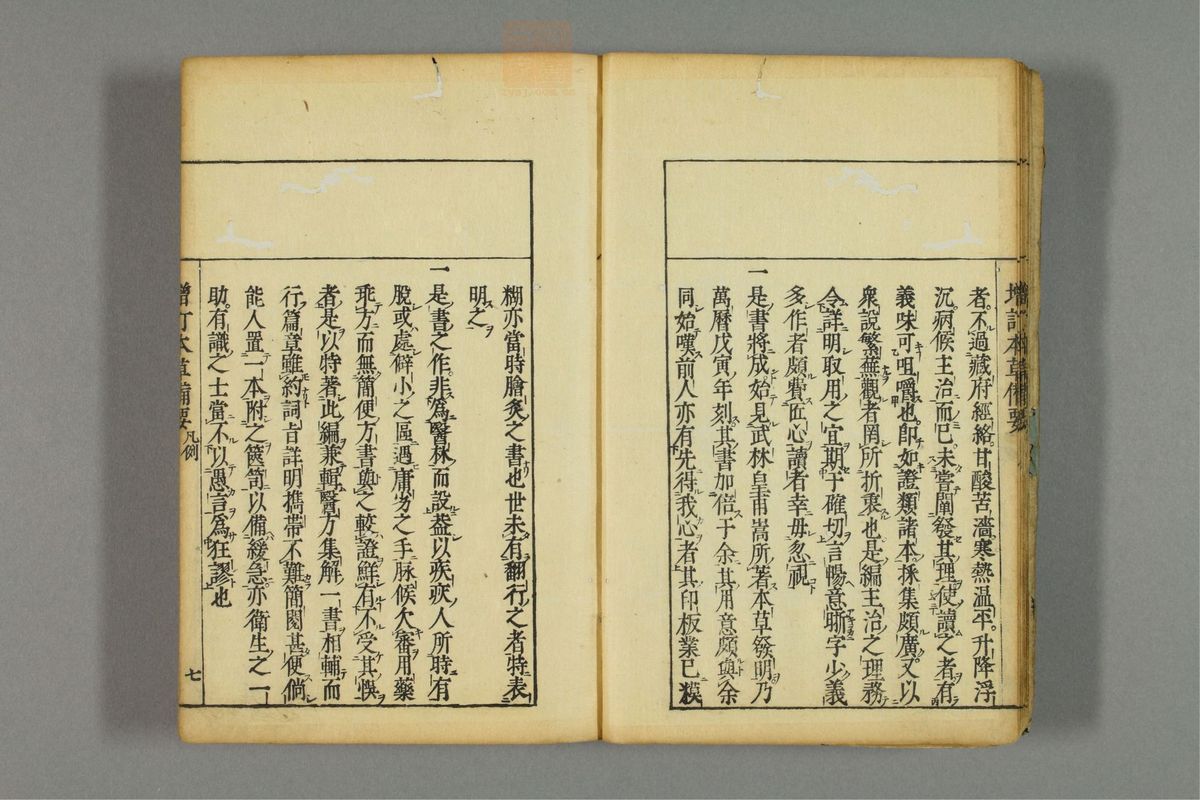 增訂本草備要
者不過藏府經絡甘酸苦濇寒熱温平升降浮
沉病候主治而已未嘗闡發其理使讀之者有
義味可咀嚼也即如證類諸本採集頗廣又以
衆說繁蕪觀者罔所折衷也是編主治之理務
令詳明取用之宜期于確切言暢意晰字少義
多作者頗費匠心讀者幸毋忽視
一是書將成始見武林皇甫嵩所著本草發明乃
萬曆戊寅年刻其書加倍于余其用意頗與余
同始嘆前人亦有先得我心者其印板業已糢
糊亦當時膾炙之書也世未有翻行之者特表
明之
一是書之作非爲醫林而設葢以疾疢人所時有
脫或處僻小之區遇庸劣之手脉候欠審用藥
乖方而無簡便方書與之較證鮮有不受其悞
者是以特著此編兼輯醫方集解一書相輔而
行篇章雖約詞旨詳明攜帶不難簡閱甚便倘
能人置一本附之篋笥以備緩急亦衛生之一
助有識之士當不以愚言爲狂謬也
增訂本草備要 凡例
七